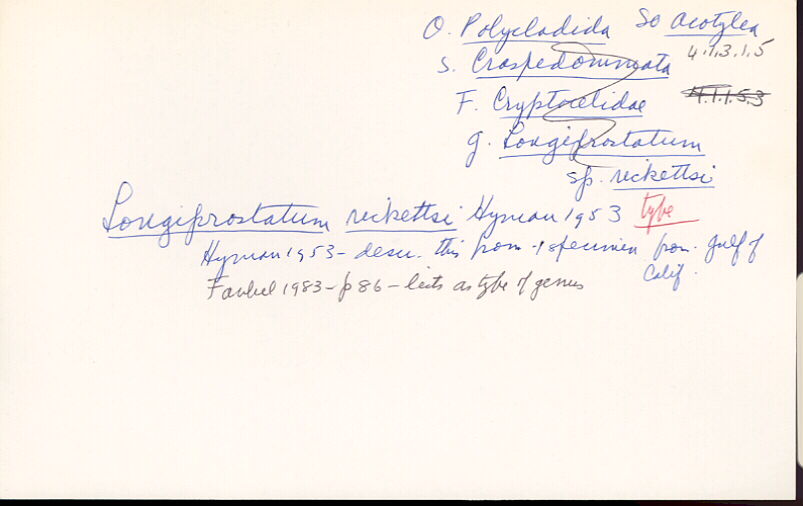 O. Polycladida So Acotylea
4.1.3.1.5
S. Craspedommata
F. Cryptocelidae 4.1.1.5.3
g. Longiprostatum
sp. rickettsi
Longiprostatum rickettsi Hyman 1953 type
Hyman 1953 - descr. this from 1 specimen from Gulf of
Calif.
Faubel 1983 - p 86 - lists as type of genus